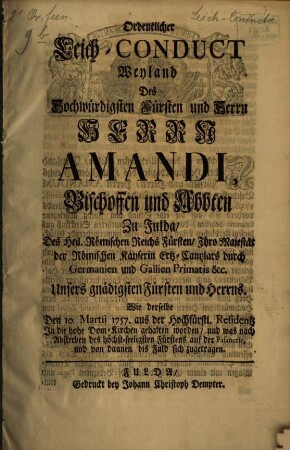 2° Or. fun.
9 b
Leich-Conducte
Ordentlicher
Leich-CONDUCT
Weyland
Des
Hochwürdigsten Fürsten und Herrn
HERRN
AMANDI,
Bischoffen und Abbten
Zu Fulda/
Des Heil. Römischen Reichs Fürsten/ Ihro Majestät
der Römischen Käyserin Ertz-Cantzlars durch
Germanien und Gallien Primatis &c.
Unsers gnädigsten Fürsten und Herrns,
Wie derselbe
Den 10. Martii 1757. aus der Hochfürstl. Residentz
In die hohe Dom-Kirchen gehalten worden/ und was nach
Absterben des höchst-seeligsten Fürstens auf der Fasanerie,
und von dannen bis Fuld sich zugetragen.
FULDA/
Gedruckt bey Johann Christoph Dempter.